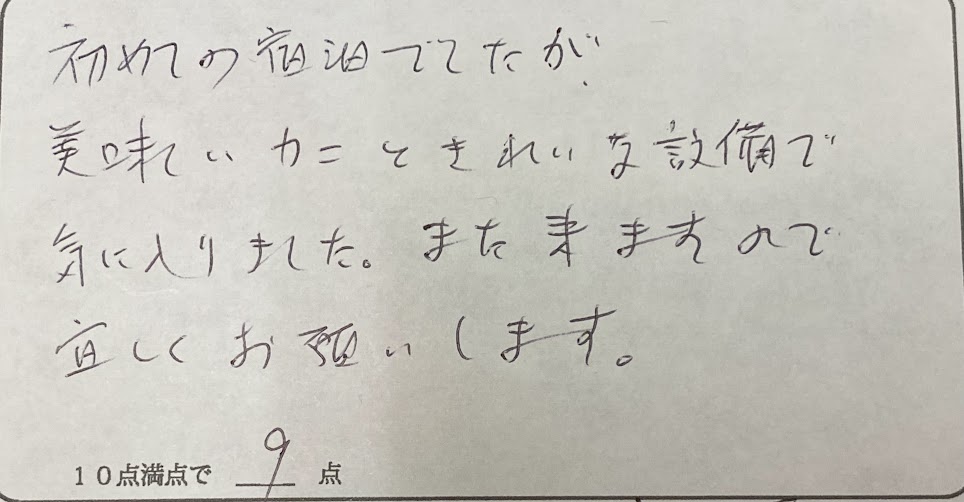 初めての宿泊でしたが、
美味しいカニときれいな設備で
気に入りました。また来ますので
宜しくお願いします。
10点満点で 9 点